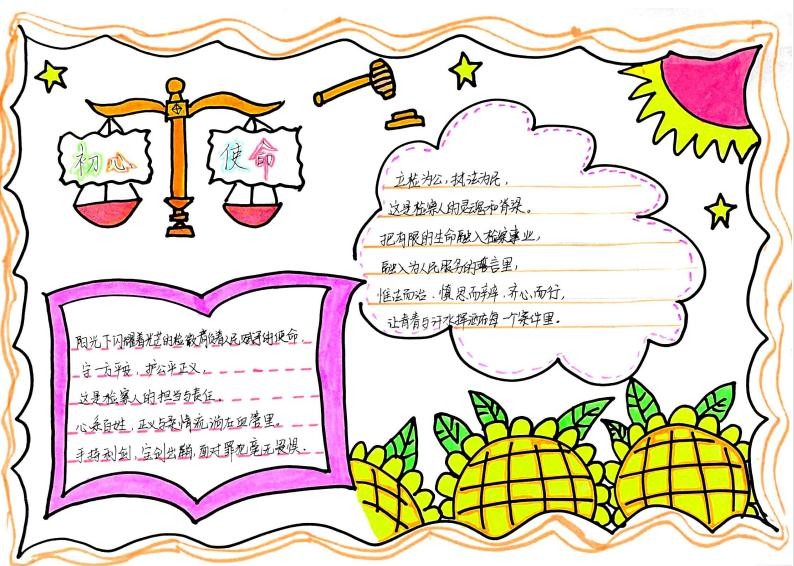 初心
使命
立检为公，执法为民，
这是检察人的灵魂和脊梁。
把有限的生命融入检察事业，
融入为人民服务的誓言里，
惟法而治、慎思而辨、齐心而行，
让青春与汗水挥洒在每一个案件里。
阳光下闪耀着光芒的检徽肩负着人民赋予的使命，
守一方平安，护公平正义，
这是检察人的担当与责任。
心系百姓，正义与柔情流淌在血管里。
手持利剑，宝剑出鞘，面对罪犯毫无畏惧。